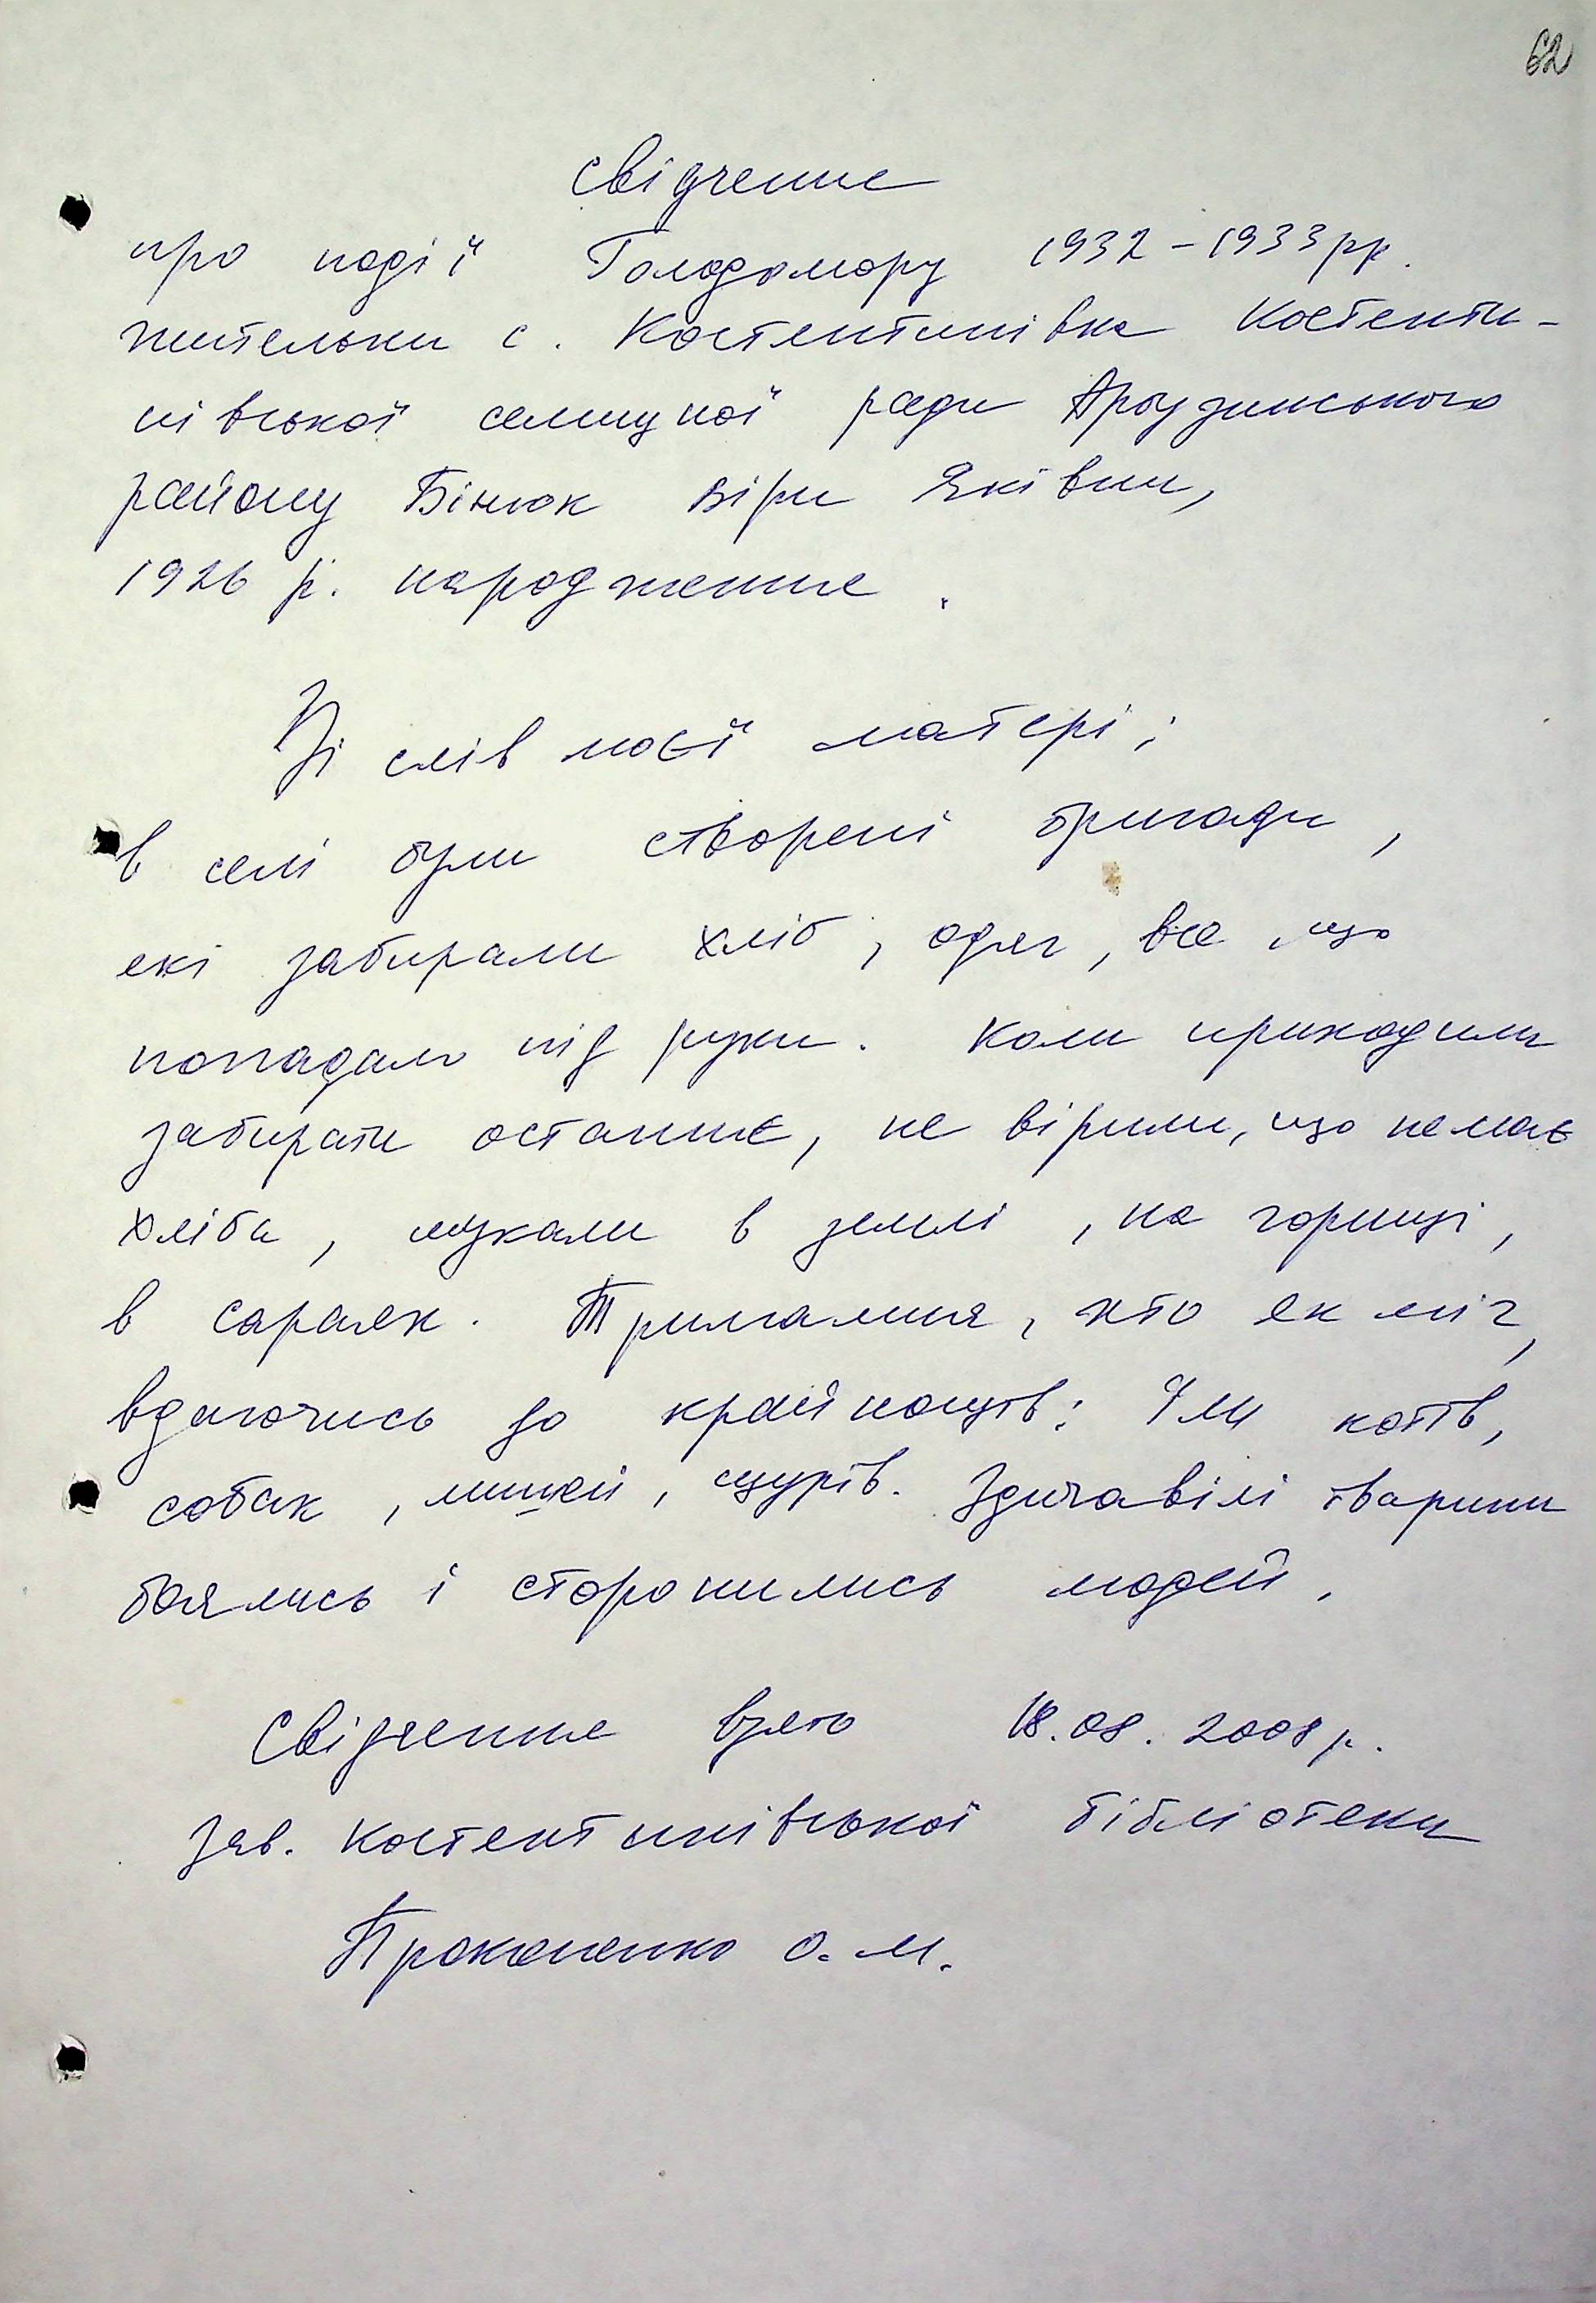 62
Свідчення
про події Голодомору 1932-1933рр.
жительки с. Костянтинівка Костянти-
нівської селищної ради Арбузинського
району Бінюк Віри Яківни,
1926 р. народження.
Зі слів моєї матері;
в селі були створені бригади,
які забирали хліб, одяг, все що
попадало під руки. Коли приходили
забирати останнє, не вірили, що немає
хліба, шукали в землі, на горищі,
в сараях. Трималися, хто як міг,
вдаючись до крайнощів: Їли котів,
собак, мишей, щурів. Здичавілі тварини
боялись і сторонились людей.
Свідчення взято 18.08.2008р.
зав. Костянтинівської бібліотеки
Прокопенко О.М.